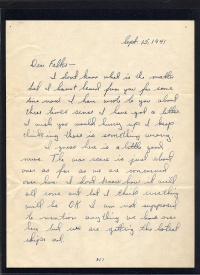 Sept. 15, 1941
Dear Folks —
I don't know what is the matter
but I haven't heard from you for some
time now. I have wrote to you about
three times since I have got a letter
I wish you would hurry up I keep
thinking there is something wrong
I guess here is a little good
news. The war scare is just about
over as far as we are concerned
over here. I don't know how it will
all come out but I think everything
will be OK. I am not supposed
to mention anything we have over
here but we are getting the
ships out.